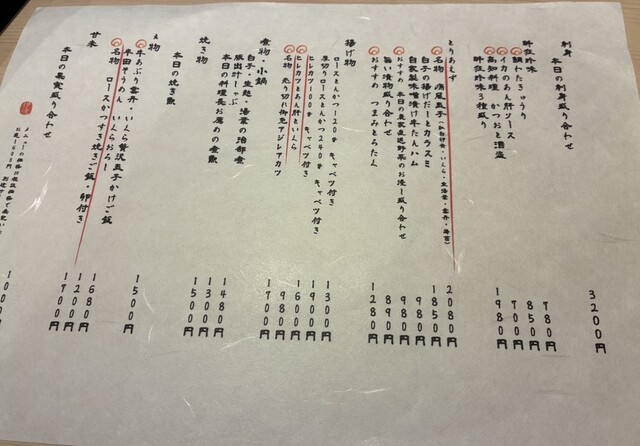 刺身
本日の刺身盛り合わせ 3200円
酢在珍味
鯛わたきゅうり 780円
イカのあん肝ソース 850円
高知料理 かつおと酒盗 700円
酢在珍味3種盛り 1980円
とりあえず
名物 痛風玉子 2080円
白子の揚げだーとカラスミ 1850円
自家製味噌漬け牛たんハム 980円
おすすめ 本日の農家直送野菜のお浸し盛り合わせ 980円
旨い漬物盛り合わせ 890円
おすすめ つまみとろたん 1280円
揚げ物
ロースとんかつ120g キャベツ付き 1300円
厚切りロースとんかつ240g キャベツ付き 1900円
ヒレカツ100g キャベツ付き
ヒレカツとあん肝といくら 1600円
名物 売り切れ御免アジレアカツ 980円
煮物・小鍋 1700円
白子・生麩・湯葉の治部煮
豚出汁しゃぶ
本日の料理長お薦めの煮魚
1480円
1300円
1500円
焼き物
本日の焼き魚
〆物
牛あぶり雲丹・いくら贅沢玉子かけご飯 1500円
半田そうめん・いくらおろし
名物 ロースかつすき焼きご飯・卵付き
1680円
1200円
1700円
甘未
本日の果実盛り合わせ
1000円